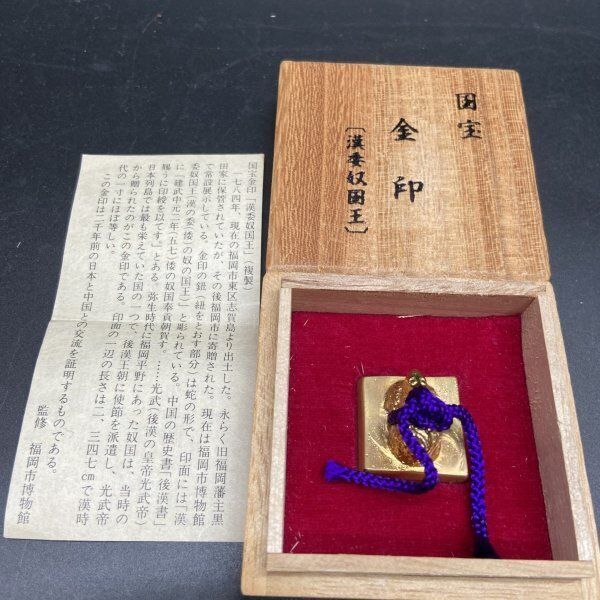 国宝
金印
〔漢委奴国王〕
国宝金印「漢委奴国王」（複製）
一七八四年、現在の福岡市東区志賀島より出土した。永らく旧福岡藩主黒
田家に保管されていたが、その後福岡市に寄贈された。現在は福岡市博物館
で常設展示している。金印の鈕（紐をとおす部分）は蛇の形で、印面には「漢
委奴国王（漢の委（倭）の奴の国王）」と彫られている。中国の歴史書「後漢書」
に「建武中元二年（五七）倭の奴国奉貢朝賀す。……光武（後漢の皇帝光武帝）
賜うに印綬を以てす」とある。弥生時代に福岡平野にあった奴国は、当時の
日本列島では最も栄えていた国の一つで、後漢王朝に使節を派遣し、光武帝
から贈られたのがこの金印である。印面の一辺の長さは二、三四七cmで漢時
代の一寸にほぼ等しい。
この金印は二千年前の日本と中国との交流を証明するものである。
監修　福岡市博物館